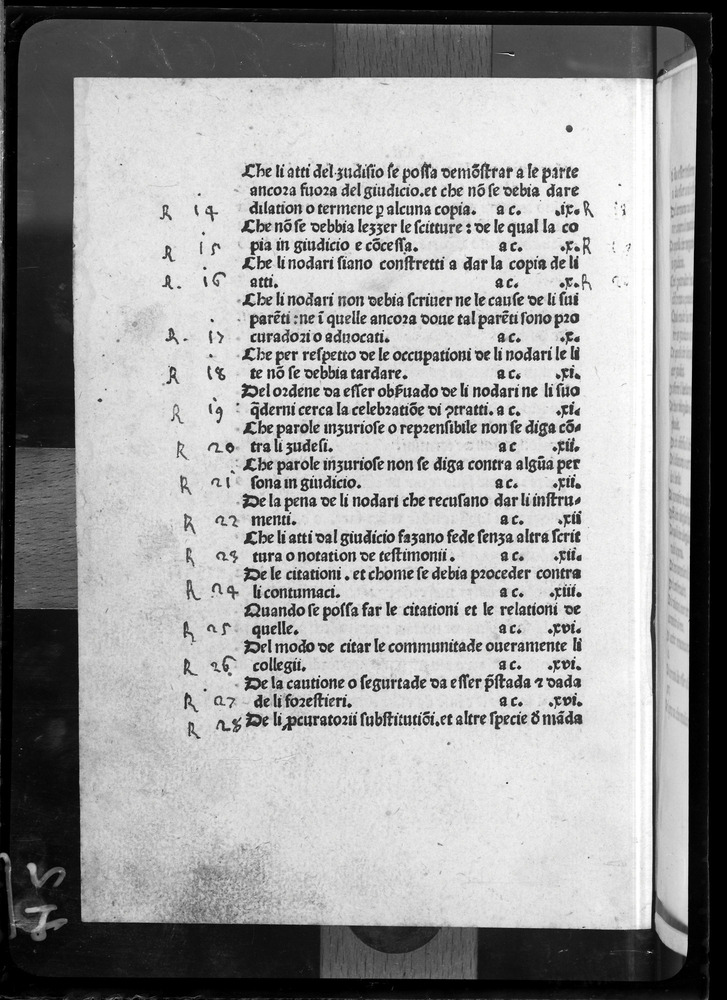 Che li atti del zudisio se possa demõstrar a le parte
ancora fuora del giudicio.et che nõ se debia dare
R 14 dilation o termene ꝑ alcuna copia. a c. .ix. R
Che nõ se debbia lezzer le scitture : de le qual la co
R 15 pia in giudicio e cõcessa. a c. .x. R
Che li nodari siano constretti a dar la copia de li
R. 16 atti. a c. .x. R
Che li nodari non debia scriuer ne le cause de li sui
parẽti : ne ĩ quelle ancora doue tal parẽti sono pro
R. 17 curadori o aduocati. a c. .x.
Che per respetto de le occupationi de li nodari le li
R 18 te nõ se debbia tardare. a c. .xi.
Del ordene da esser obẜuado de li nodari ne li suo
R 19 q̃derni cerca la celebratiõe di ꝯtratti. a c. .xi.
Che parole inzuriose o reprensibile non se diga cõ-
R 20 tra li zudesi. a c .xii.
Che parole inzuriose non se diga contra algũa per
R 21 sona in giudicio. a c. .xii.
De la pena de li nodari che recusano dar li instru-
R 22 menti. a c. .xii
Che li atti dal giudicio fazano fede senza altra scrit
R 23 tura o notation de testimonii . a c. .xii.
De le citationi . et chome se debia proceder contra
R 24 li contumaci. a c. .xiii.
Quando se possa far le citationi et le relationi de
R 25 quelle. a c. .xvi.
Del modo de citar le communitade oueramente li
R 26 collegii. a c. .xvi.
De la cautione o segurtade da esser p̃stada ⁊ dada
R 27 de li forestieri. a c. .xvi.
R 28 De li ꝓcuratorii substitutiõi.et altre specie d̃ mãda